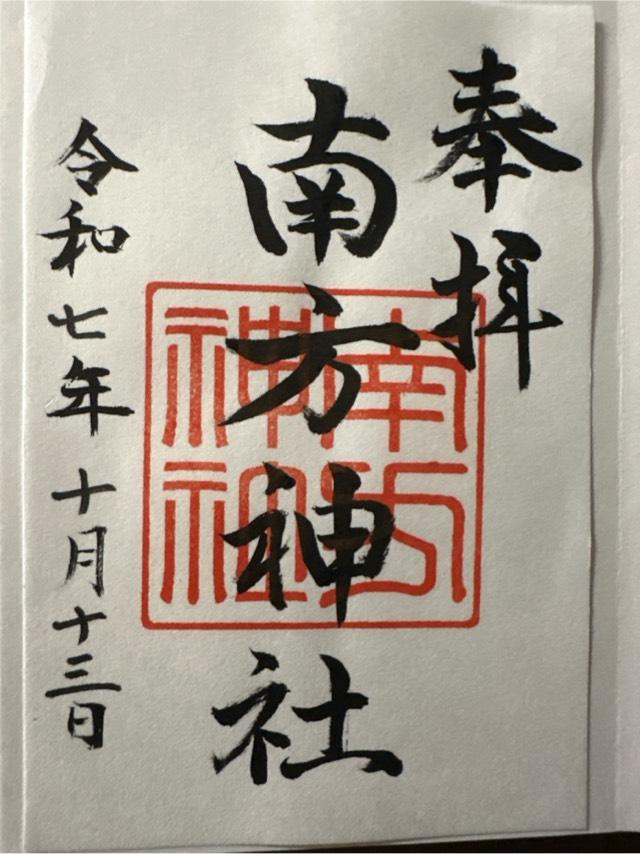 奉拝
南方神社
南方神社
令和七年十月十三日